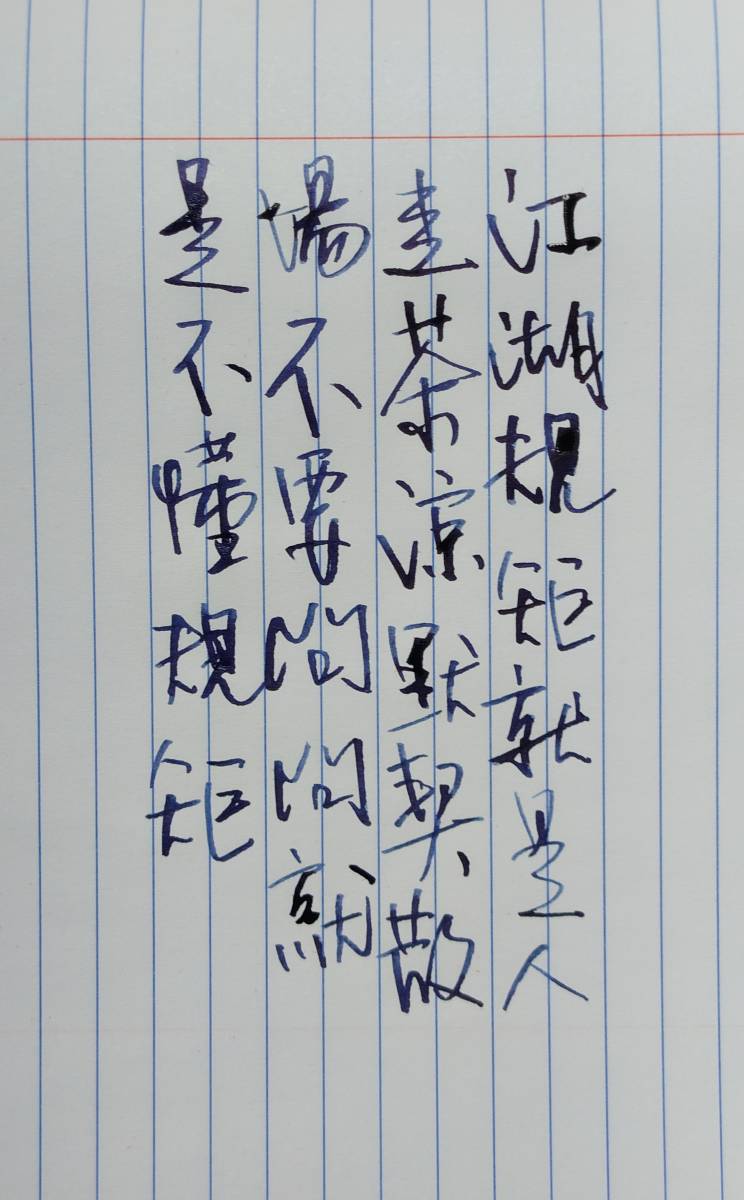 江湖規矩就是人
走茶涼默契散
場不要問問就
是不懂規矩